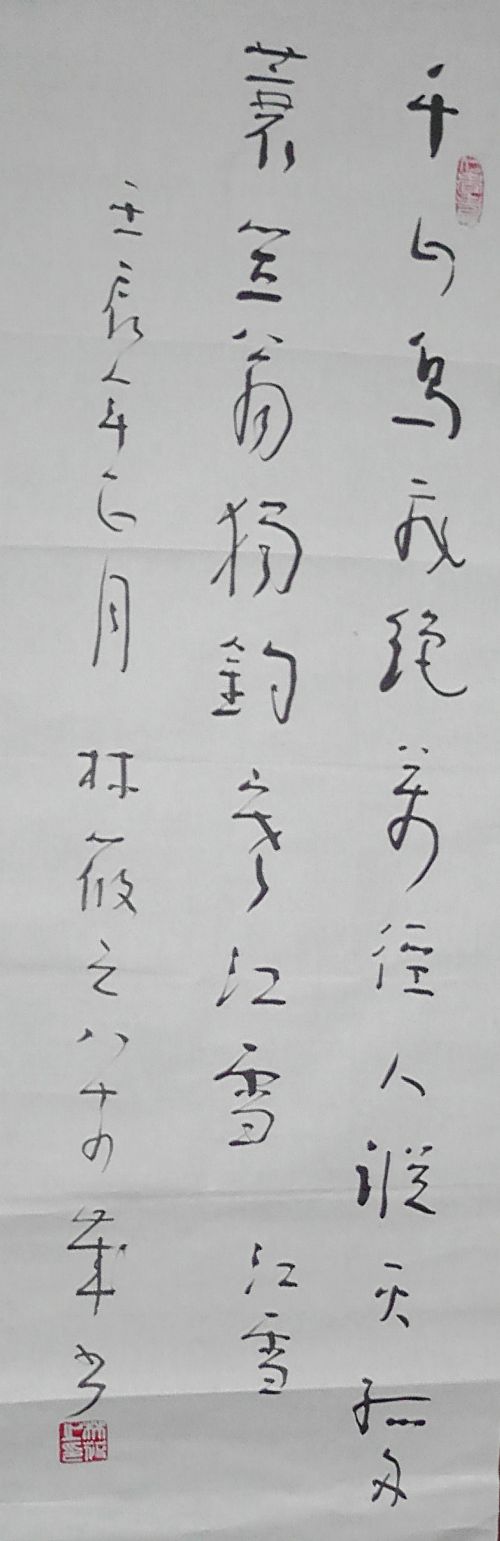 千山鳥飛絶萬徑人蹤灭孤舟
蓑笠翁獨釣寒江雪 江雪
壬辰年正月 林筱之八十四歲书